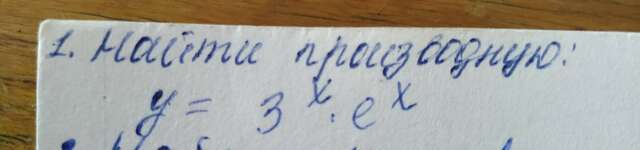 1. Найти производную:
y = 3^x · e^x